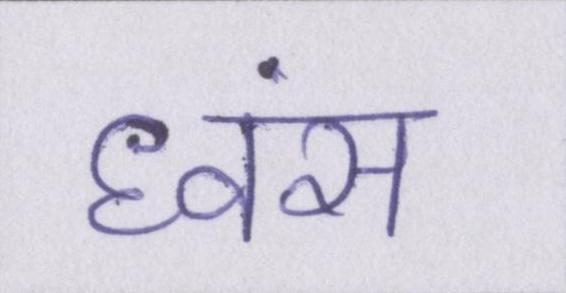 ध्वंस